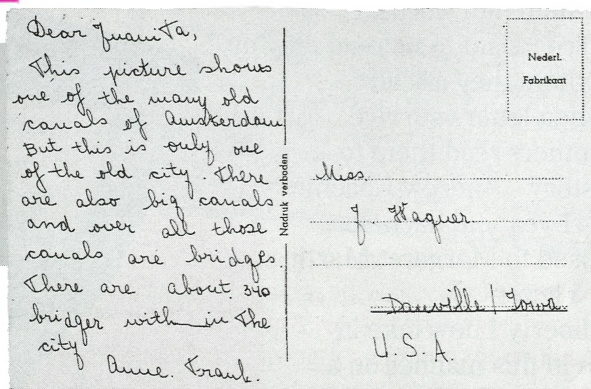 Dear Juanita,
This picture shows
one of the many old
canals of Amsterdam
But this is only one
of the old city. There
are also big canals
and over all those
canals are bridges.
There are about 340
bridges with in the
city
Anne. Frank.
Nadruk verboden
Nederl.
Fabrikaat
Miss.
J. Wagner
Danville / Iowa.
U.S.A.